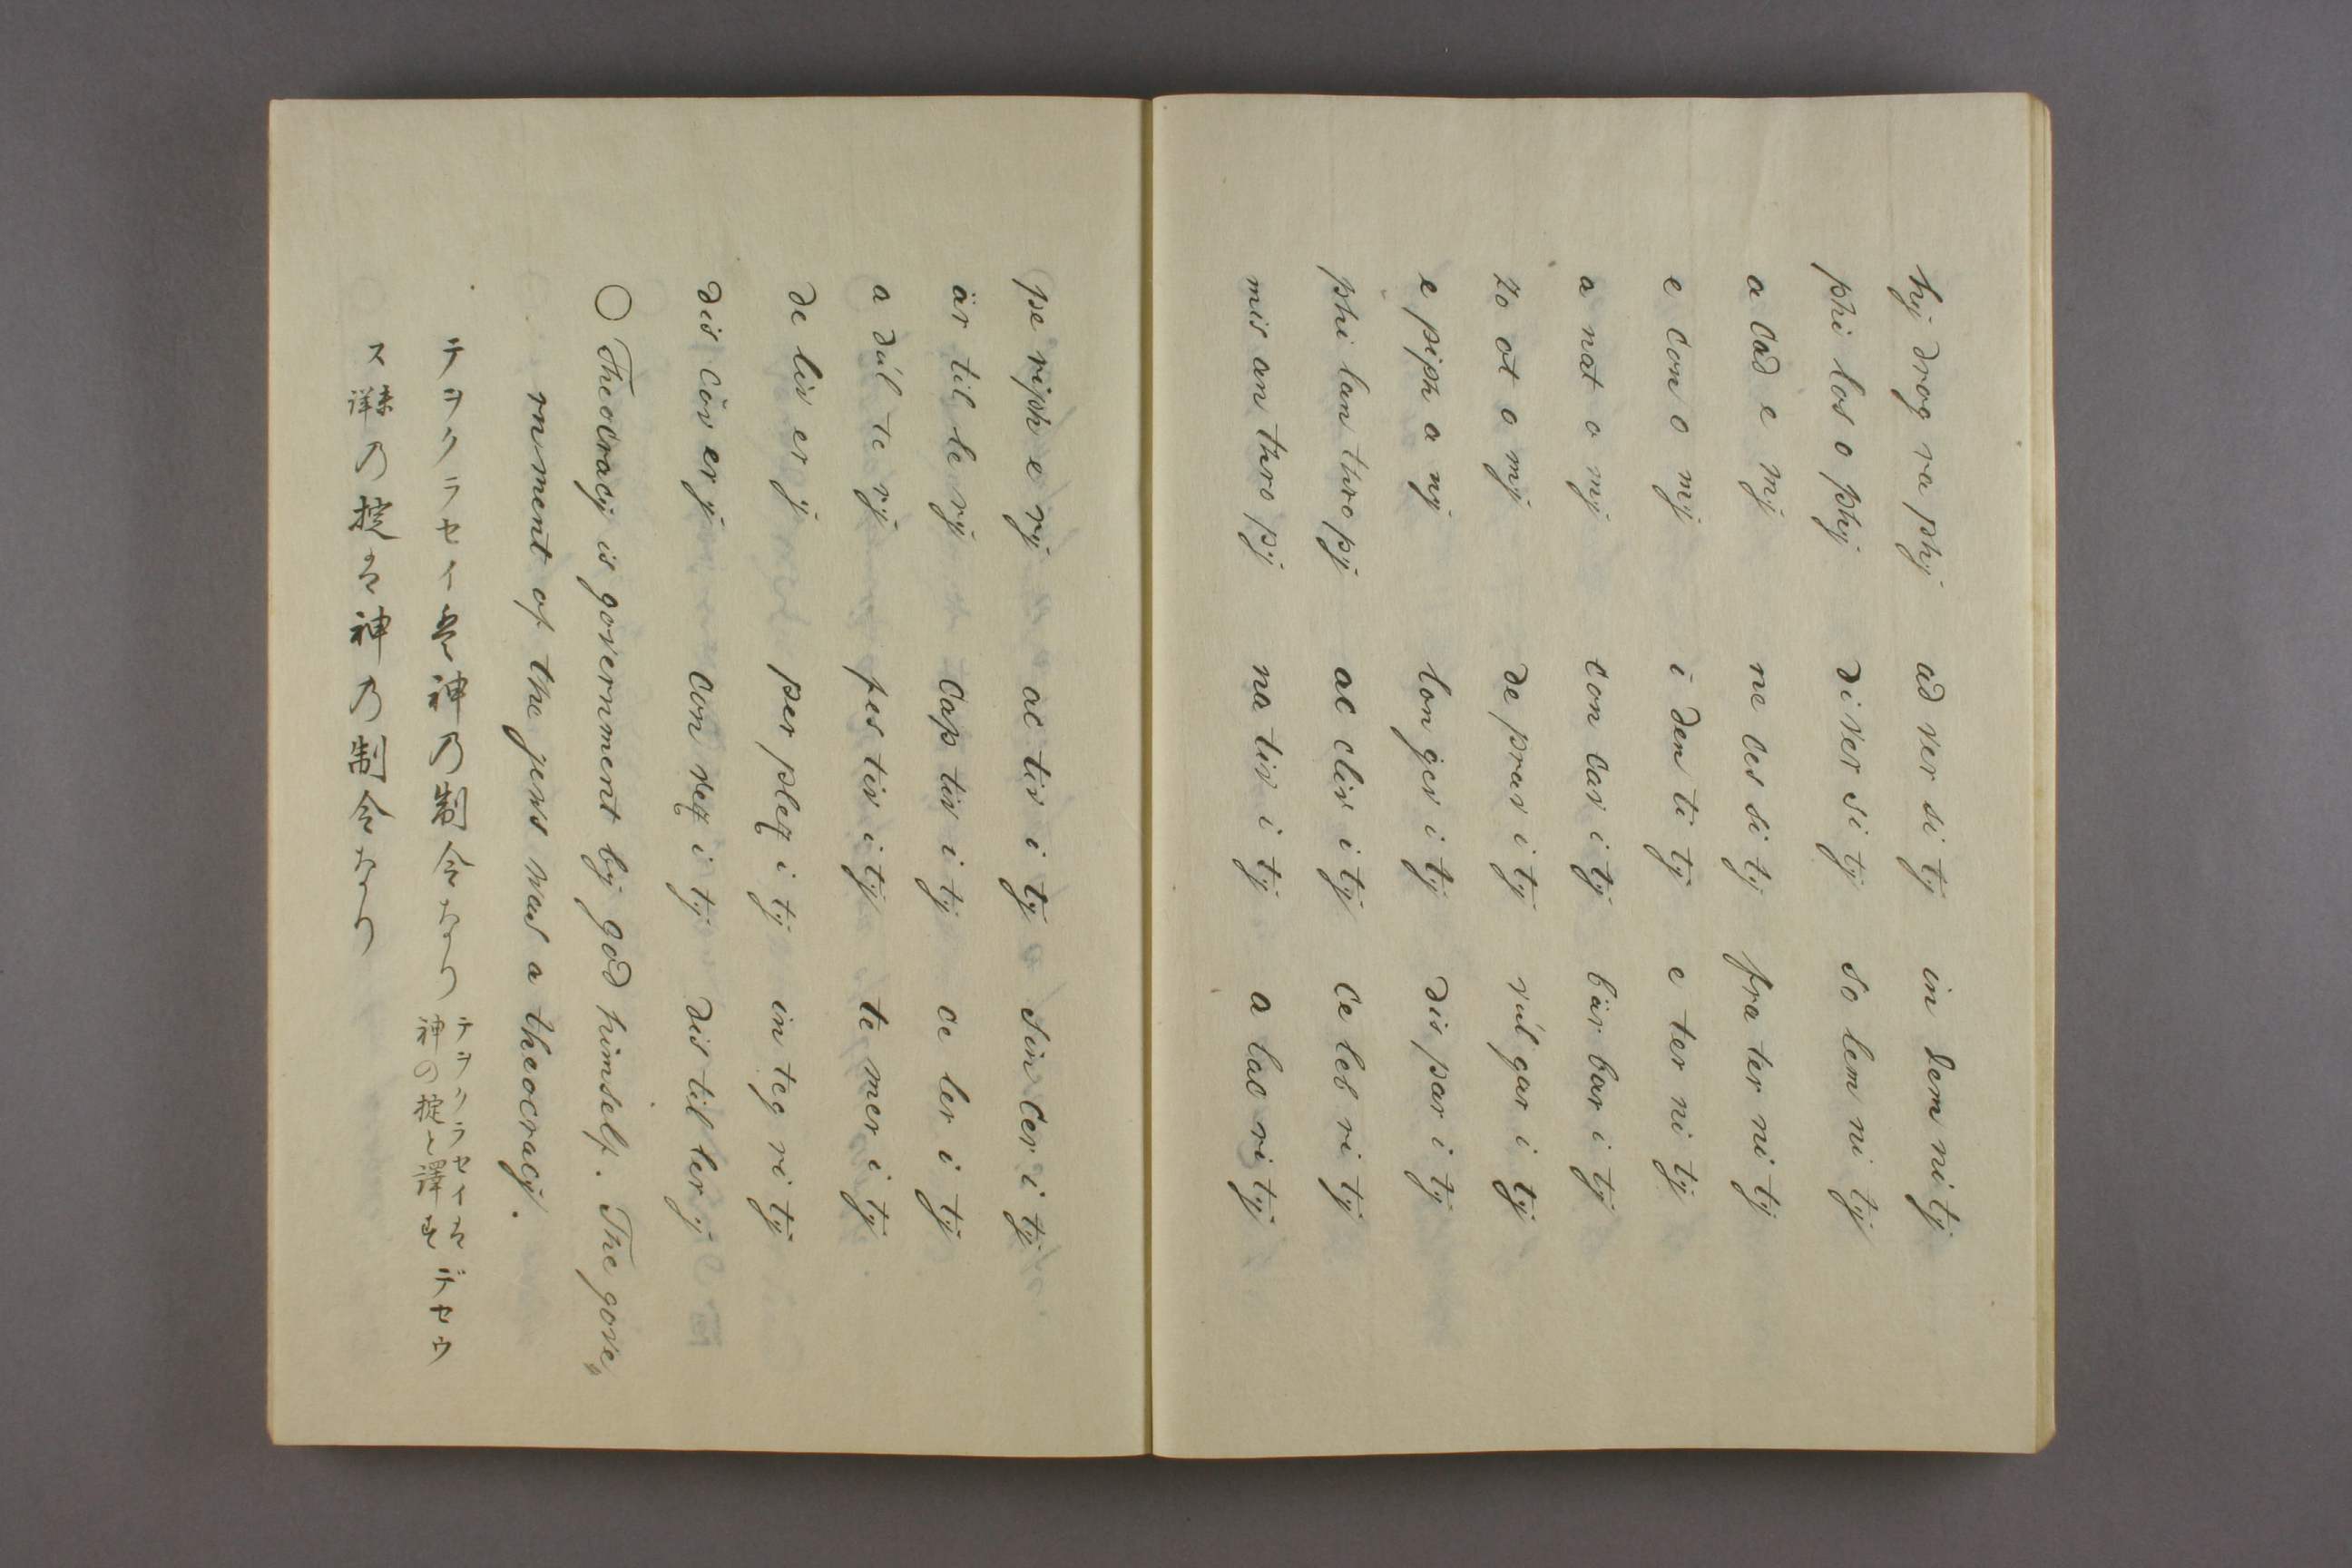 hÿ drog ra phÿ ad ver si tÿ in dem ni tÿ
phi los o phÿ di ver si tÿ so lem ni tÿ
a cad e mÿ ne ces si tÿ fra ter ni tÿ
e con o mÿ i den ti tÿ e ter ni tÿ
a nat o mÿ con cav i tÿ bär bar i tÿ
zo ot o mÿ de prav i tÿ vúl gar i tÿ
e piph a nÿ lon gev i tÿ dis par i tÿ
phi lan thro pÿ ac cliv i tÿ ce leb ri tÿ
mis an thro pÿ na tiv i tÿ a lac ri tÿ
pe riph e rÿ ac tiv i tÿ sin cer i tÿ
är til le rÿ cap tiv i tÿ ce ler i tÿ
a dúl te rÿ fes tiv i tÿ te mer i tÿ
de liv er ÿ per plex i tÿ in teg ri tÿ
dis cov er ÿ con vex i tÿ dis til ler ÿ
○ Theocracÿ is government bÿ god himself. The gove„
rnment of the jews was a theocracÿ.
テヲクラセイ 神乃制令なり テヲクラセイハ 神の掟と譯すヂセウ
ス 乃掟ハ神乃制令なり